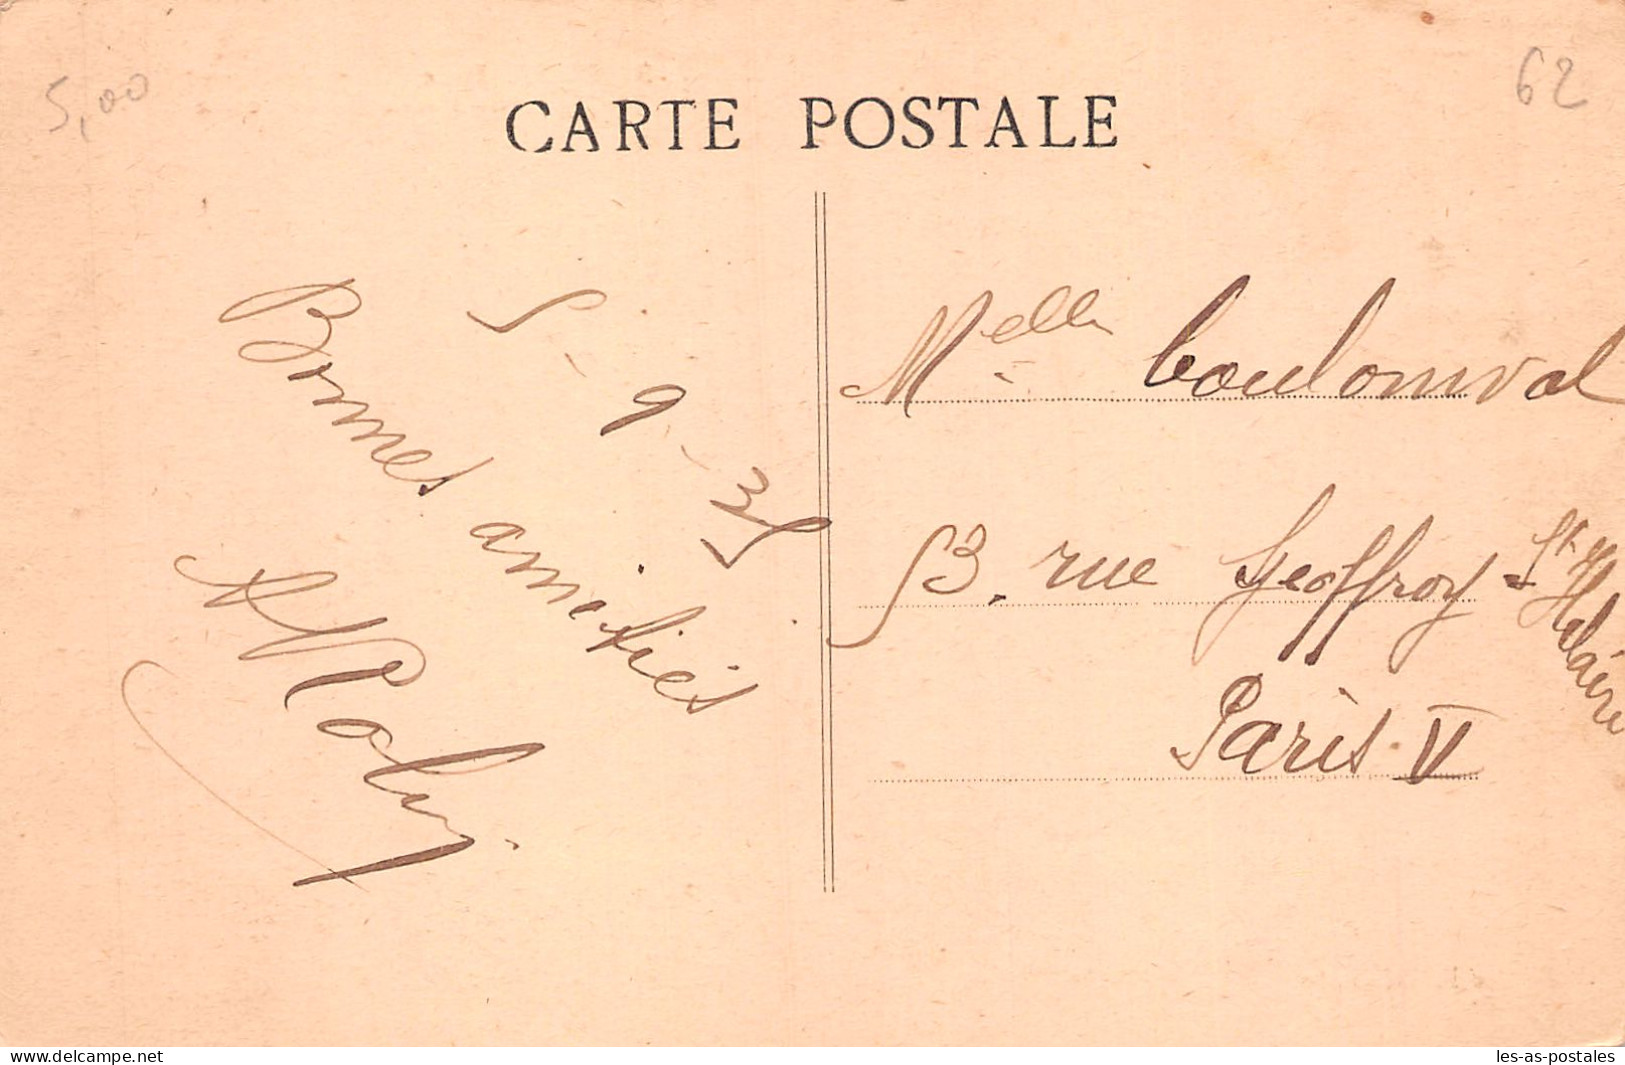 5,00
62
CARTE POSTALE
5-9-35
Bonnes amitiés
Melle Coulomval
53, rue Geoffroy St Hilaire
Paris V
www.delcampe.net
les-as-postales